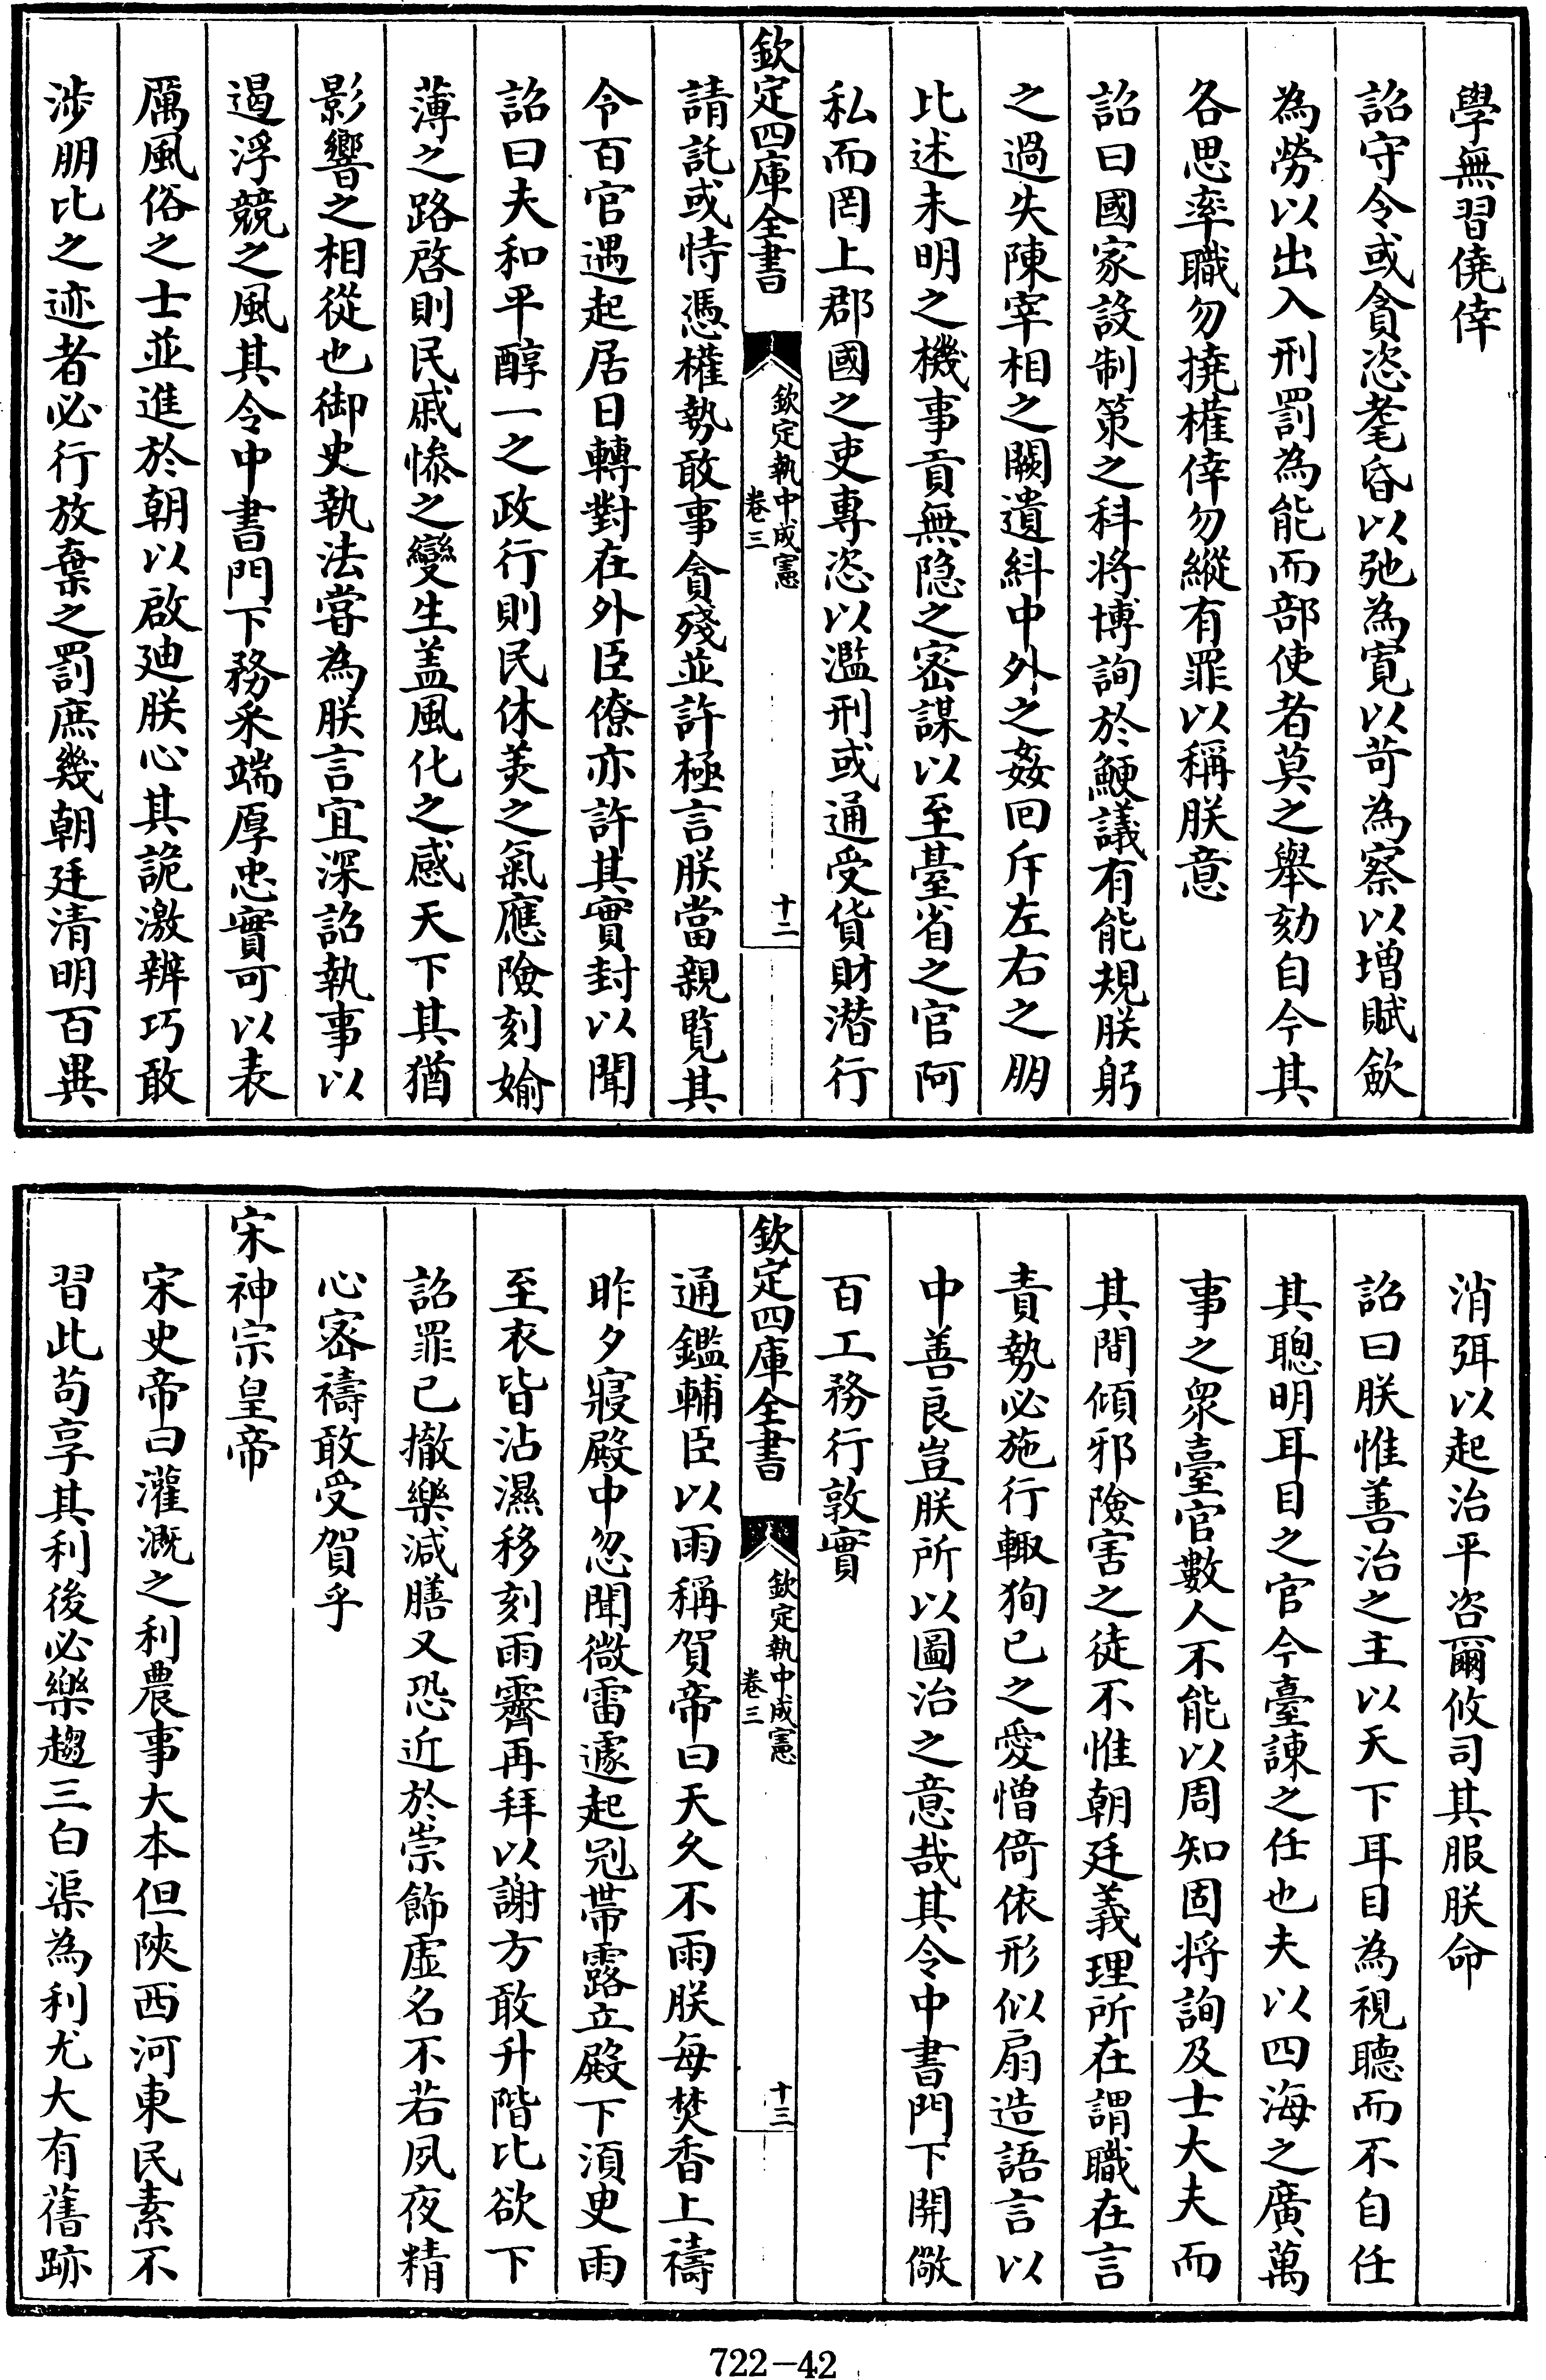 學無習僥倖
詔守令或貪恣耄昏以弛為寛以苛為察以增賦斂
為勞以出入刑罰為能而部使者莫之舉劾自今其
各思率職勿撓權倖勿縱有罪以稱朕意
詔曰國家設制策之科將博詢於鯁議有能規朕躬
之過失陳宰相之闕遺紏中外之姦回斥左右之朋
比述未明之機事貢無隐之宻謀以至臺省之官阿
私而罔上郡國之吏專恣以濫刑或通受貨財潛行
欽定四庫全書
欽定執中成憲
卷三
十二
請託或恃憑權勢敢事貪殘並許極言朕當親覧其
令百官遇起居日轉對在外臣僚亦許其實封以聞
詔曰夫和平醇一之政行則民休羙之氣應險刻媮
薄之路啓則民戚慘之變生盖風化之感天下其猶
影響之相從也御史執法嘗為朕言宜深詔執事以
遏浮競之風其令中書門下務釆端厚忠實可以表
厲風俗之士並進於朝以啟廸朕心其詭激辨巧敢
涉朋比之迹者必行放棄之罰庶幾朝廷清明百異
消弭以起治平咨爾攸司其服朕命
詔曰朕惟善治之主以天下耳目為視聽而不自任
其聰明耳目之官今臺諫之任也夫以四海之廣萬
事之衆臺官數人不能以周知固將詢及士大夫而
其間傾邪險害之徒不惟朝廷義理所在謂職在言
責勢必施行輙狥已之愛憎倚依形似扇造語言以
中善良豈朕所以圖治之意哉其令中書門下開儆
百工務行敦實
欽定四庫全書
欽定執中成憲
卷三
十三
通鑑輔臣以雨稱賀帝曰天久不雨朕每焚香上禱
昨夕寢殿中忽聞微雷遽起冠帶露立殿下湏臾雨
至衣皆沾濕移刻雨霽再拜以謝方敢升階比欲下
詔罪已撤樂減膳又恐近於崇飾虛名不若夙夜精
心宻禱敢受賀乎
宋神宗皇帝
宋史帝曰灌溉之利農事大本但陝西河東民素不
習此茍享其利後必樂趨三白渠為利尤大有舊跡
722-42